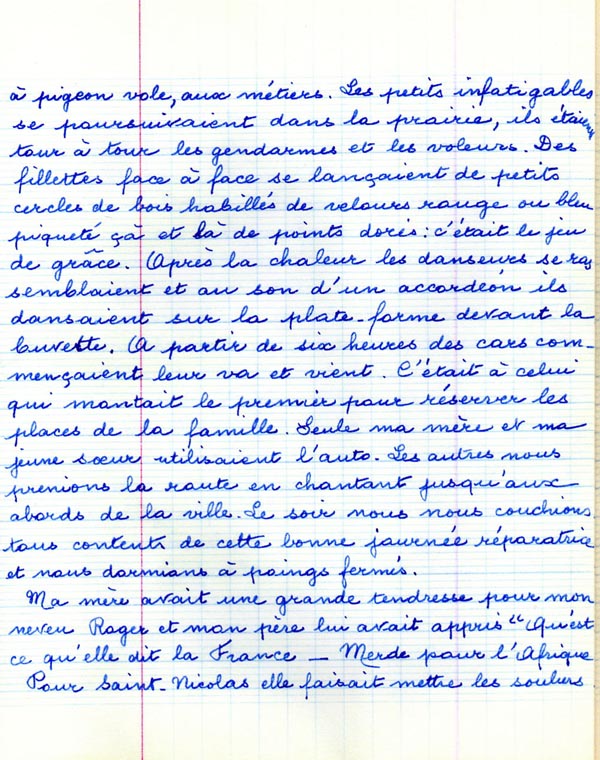 à pigeon vole, aux métiers. Les petits infatigables
se poursuivaient dans la prairie, ils étaient
tour à tour les gendarmes et les voleurs. Des
fillettes face à face se lançaient de petits
cercles de bois habillés de velours rouge ou bleu
piqueté çà et là de points dorés : c'était le jeu
de grâce. Après la chaleur les danseurs se ras
semblaient et au son d'un accordéon ils
dansaient sur la plate-forme devant la
buvette. A partir de six heures des cars com-
mençaient leur va et vient. C'était à celui
qui montait le premier pour réserver les
places de la famille. Seule ma mère et ma
jeune sœur utilisaient l'auto. Les autres nous
prenions la route en chantant jusqu'aux
abords de la ville. Le soir nous nous couchions
tous contents de cette bonne journée réparatrice
et nous dormions à poings fermés.
Ma mère avait une grande tendresse pour mon
neveu Roger et mon père lui avait appris " Qu'est
ce qu'elle dit la France — Merde pour l'Afrique
Pour Saint-Nicolas elle faisait mettre les souliers